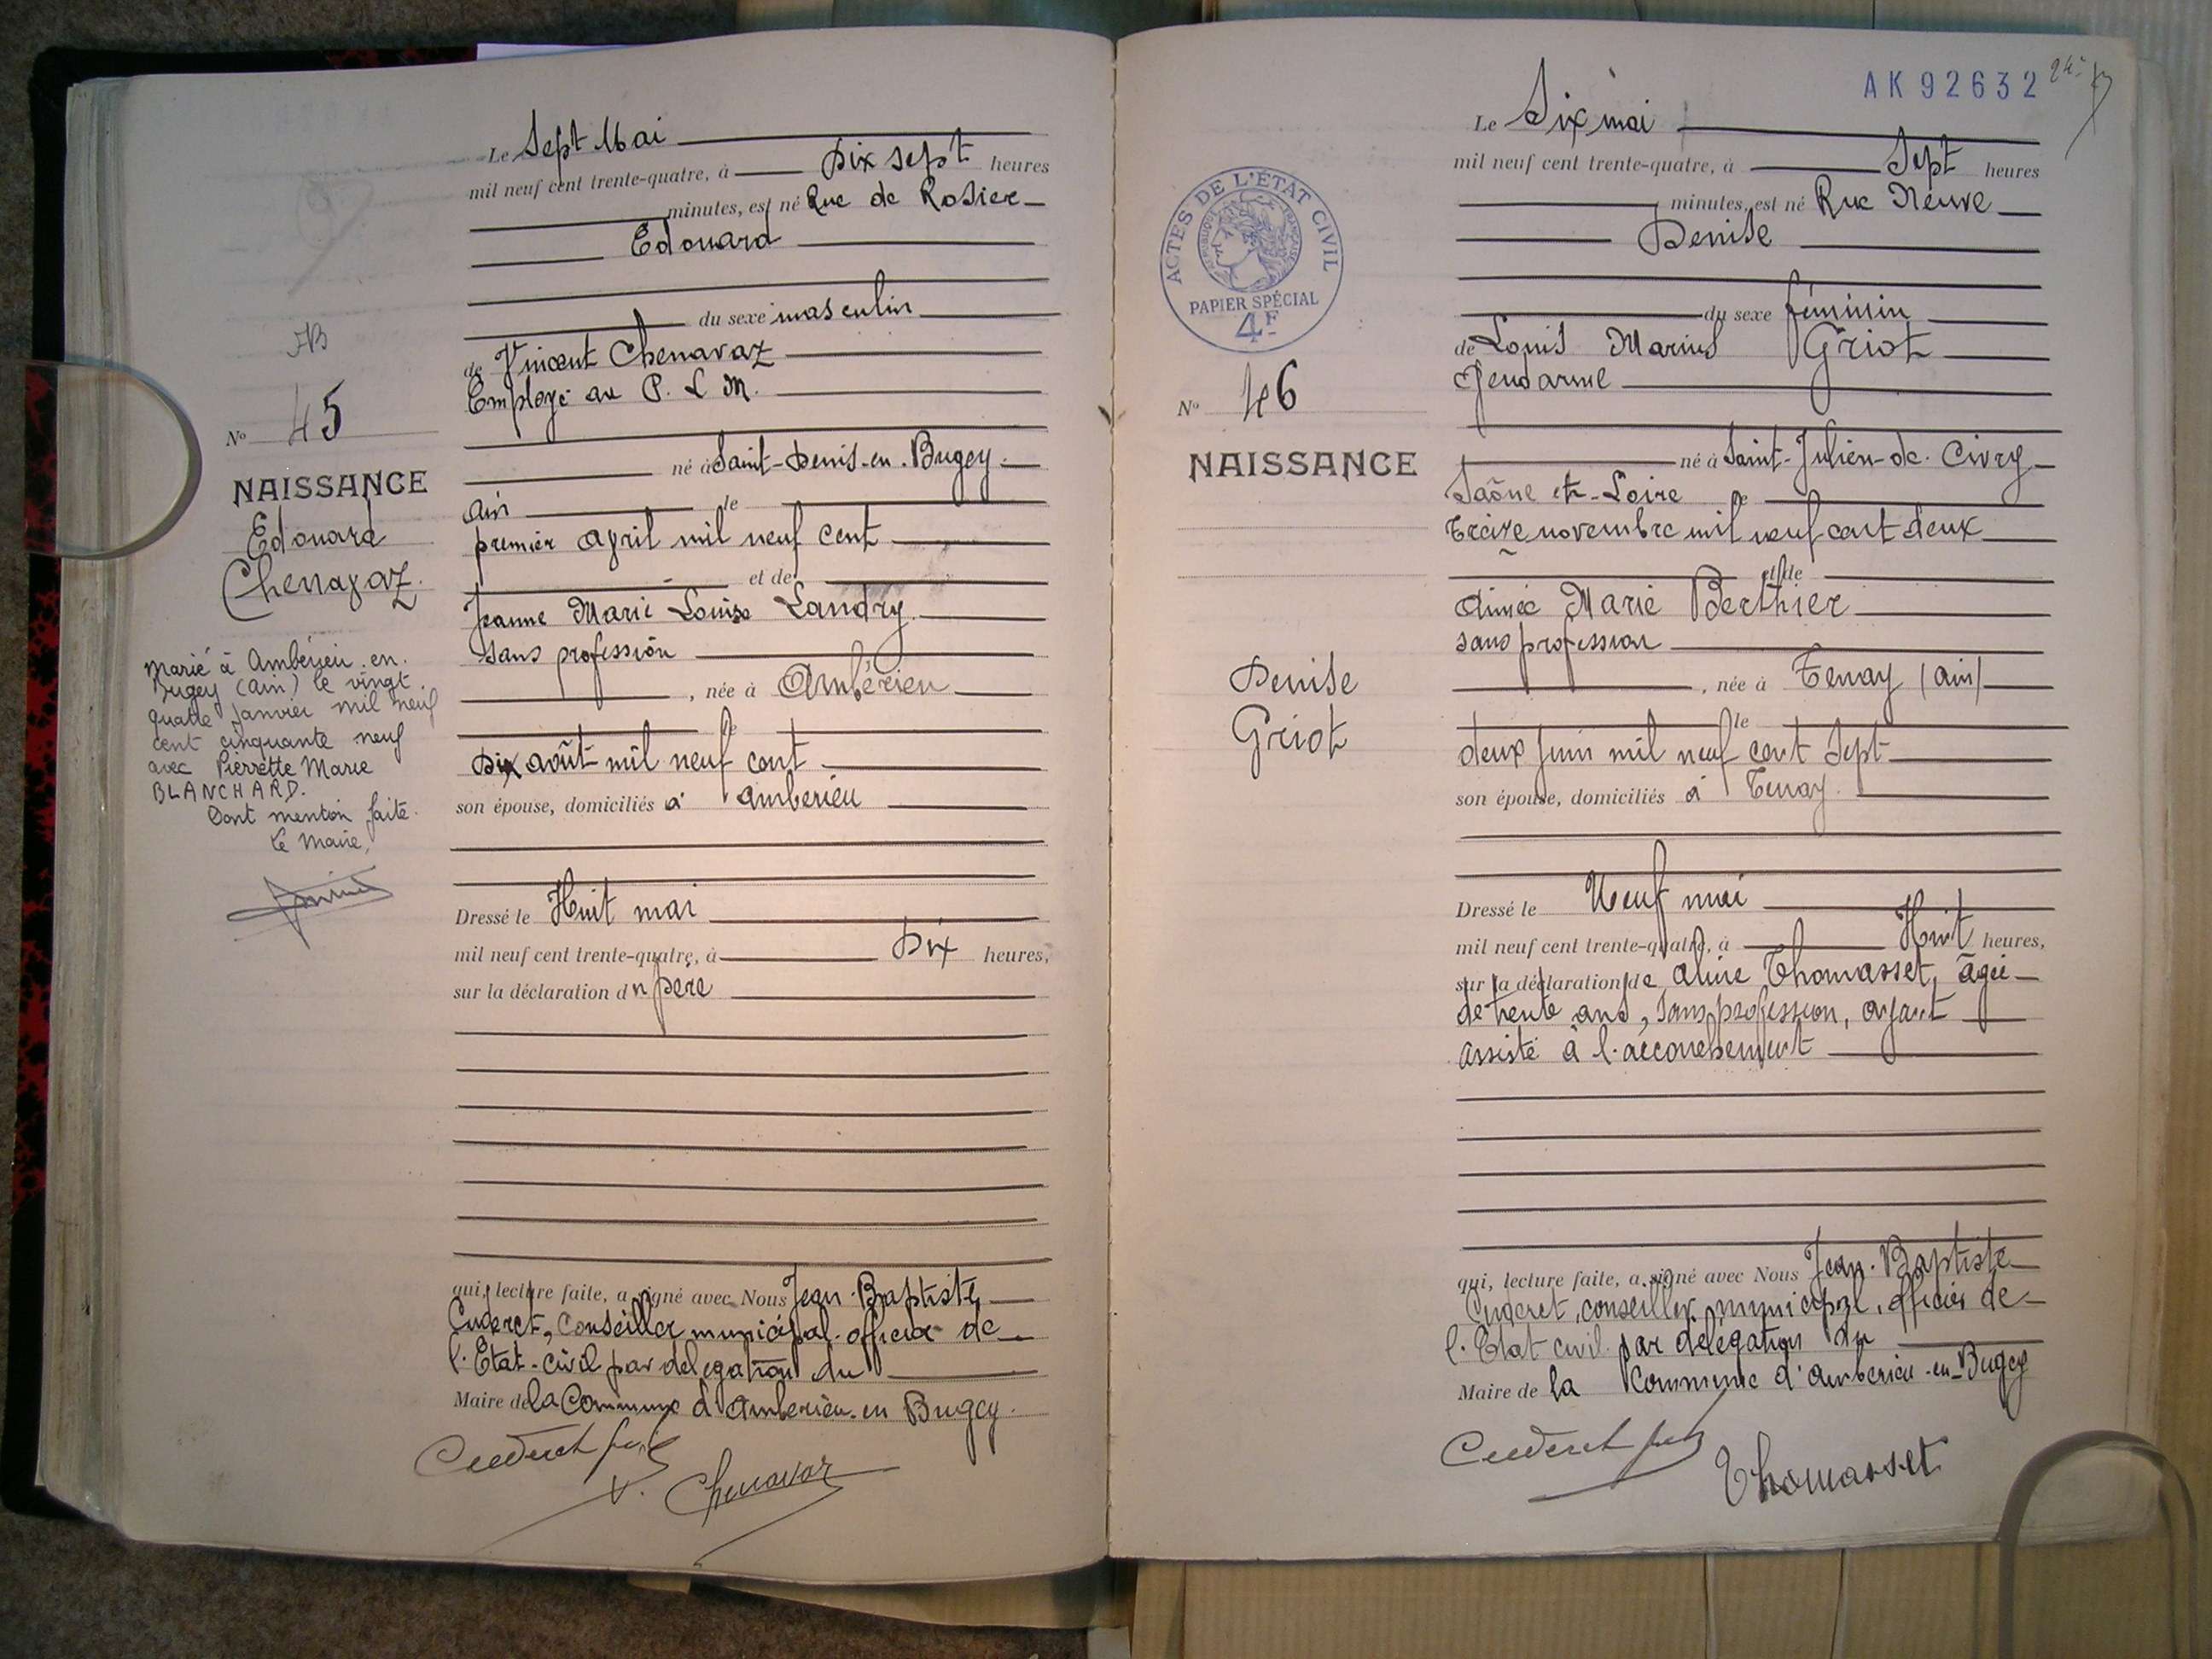 Le Sept Mai
mil neuf cent trente-quatre, à Dix sept heures
minutes, est né Rue de Rosier
Edouard
du sexe masculin
de Vincent Chenavaz
Employé au P. L M.
né à Saint-Denis-en-Bugey
Ain le
premier Avril mil neuf cent
et de
Jeanne Marie Louise Landry
sans profession
, née à Ambérieu
le
Dix août mil neuf cent
son épouse, domiciliés à Ambérieu
Dressé le Huit mai
mil neuf cent trente-quatre, à Dix heures,
sur la déclaration du père
qui, lecture faite, a signé avec Nous Jean-Baptiste
Cuderet, Conseiller municipal officier de
l'Etat-civil par délégation du
Maire de la Commune d'Ambérieu-en Bugey.
Cuderet
V. Chenavaz
AB
No 45
NAISSANCE
Edouard
Chenavaz.
Marié à Ambérieu.en.
Bugey (Ain) le vingt.
quatre Janvier mil neuf
cent cinquante neuf
avec Pierrette Marie
BLANCHARD.
Dont mention faite.
Le Maire,
AK92632
Le Six mai
mil neuf cent trente-quatre, à Sept heures
minutes, est né Rue Neuve
Denise
du sexe féminin
de Louis Marius Griot
Gendarme
né à Saint-Julien-de-Civry
Saône et-Loire le
treize novembre mil neuf cent deux
et de
Aimée Marie Berthier
sans profession
, née à Tenay (Ain)
le
deux Juin mil neuf cent Sept
son épouse, domiciliés à Tenay.
Dressé le Neuf mai
mil neuf cent trente-quatre, à Huit heures,
sur la déclaration de Aline Thomasset, âgée
de trente ans, sans profession, ayant
assisté à l'accouchement
qui, lecture faite, a signé avec Nous Jean-Baptiste
Cuderet, conseiller municipal, officier de
l'Etat civil par délégation du
Maire de la Commune d'Ambérieu-en-Bugey
Cuderet
Thomasset
ACTES DE L'ÉTAT CIVIL
RÉPUBLIQUE FRANÇAISE
PAPIER SPÉCIAL
4F
No 46
NAISSANCE
Denise
Griot